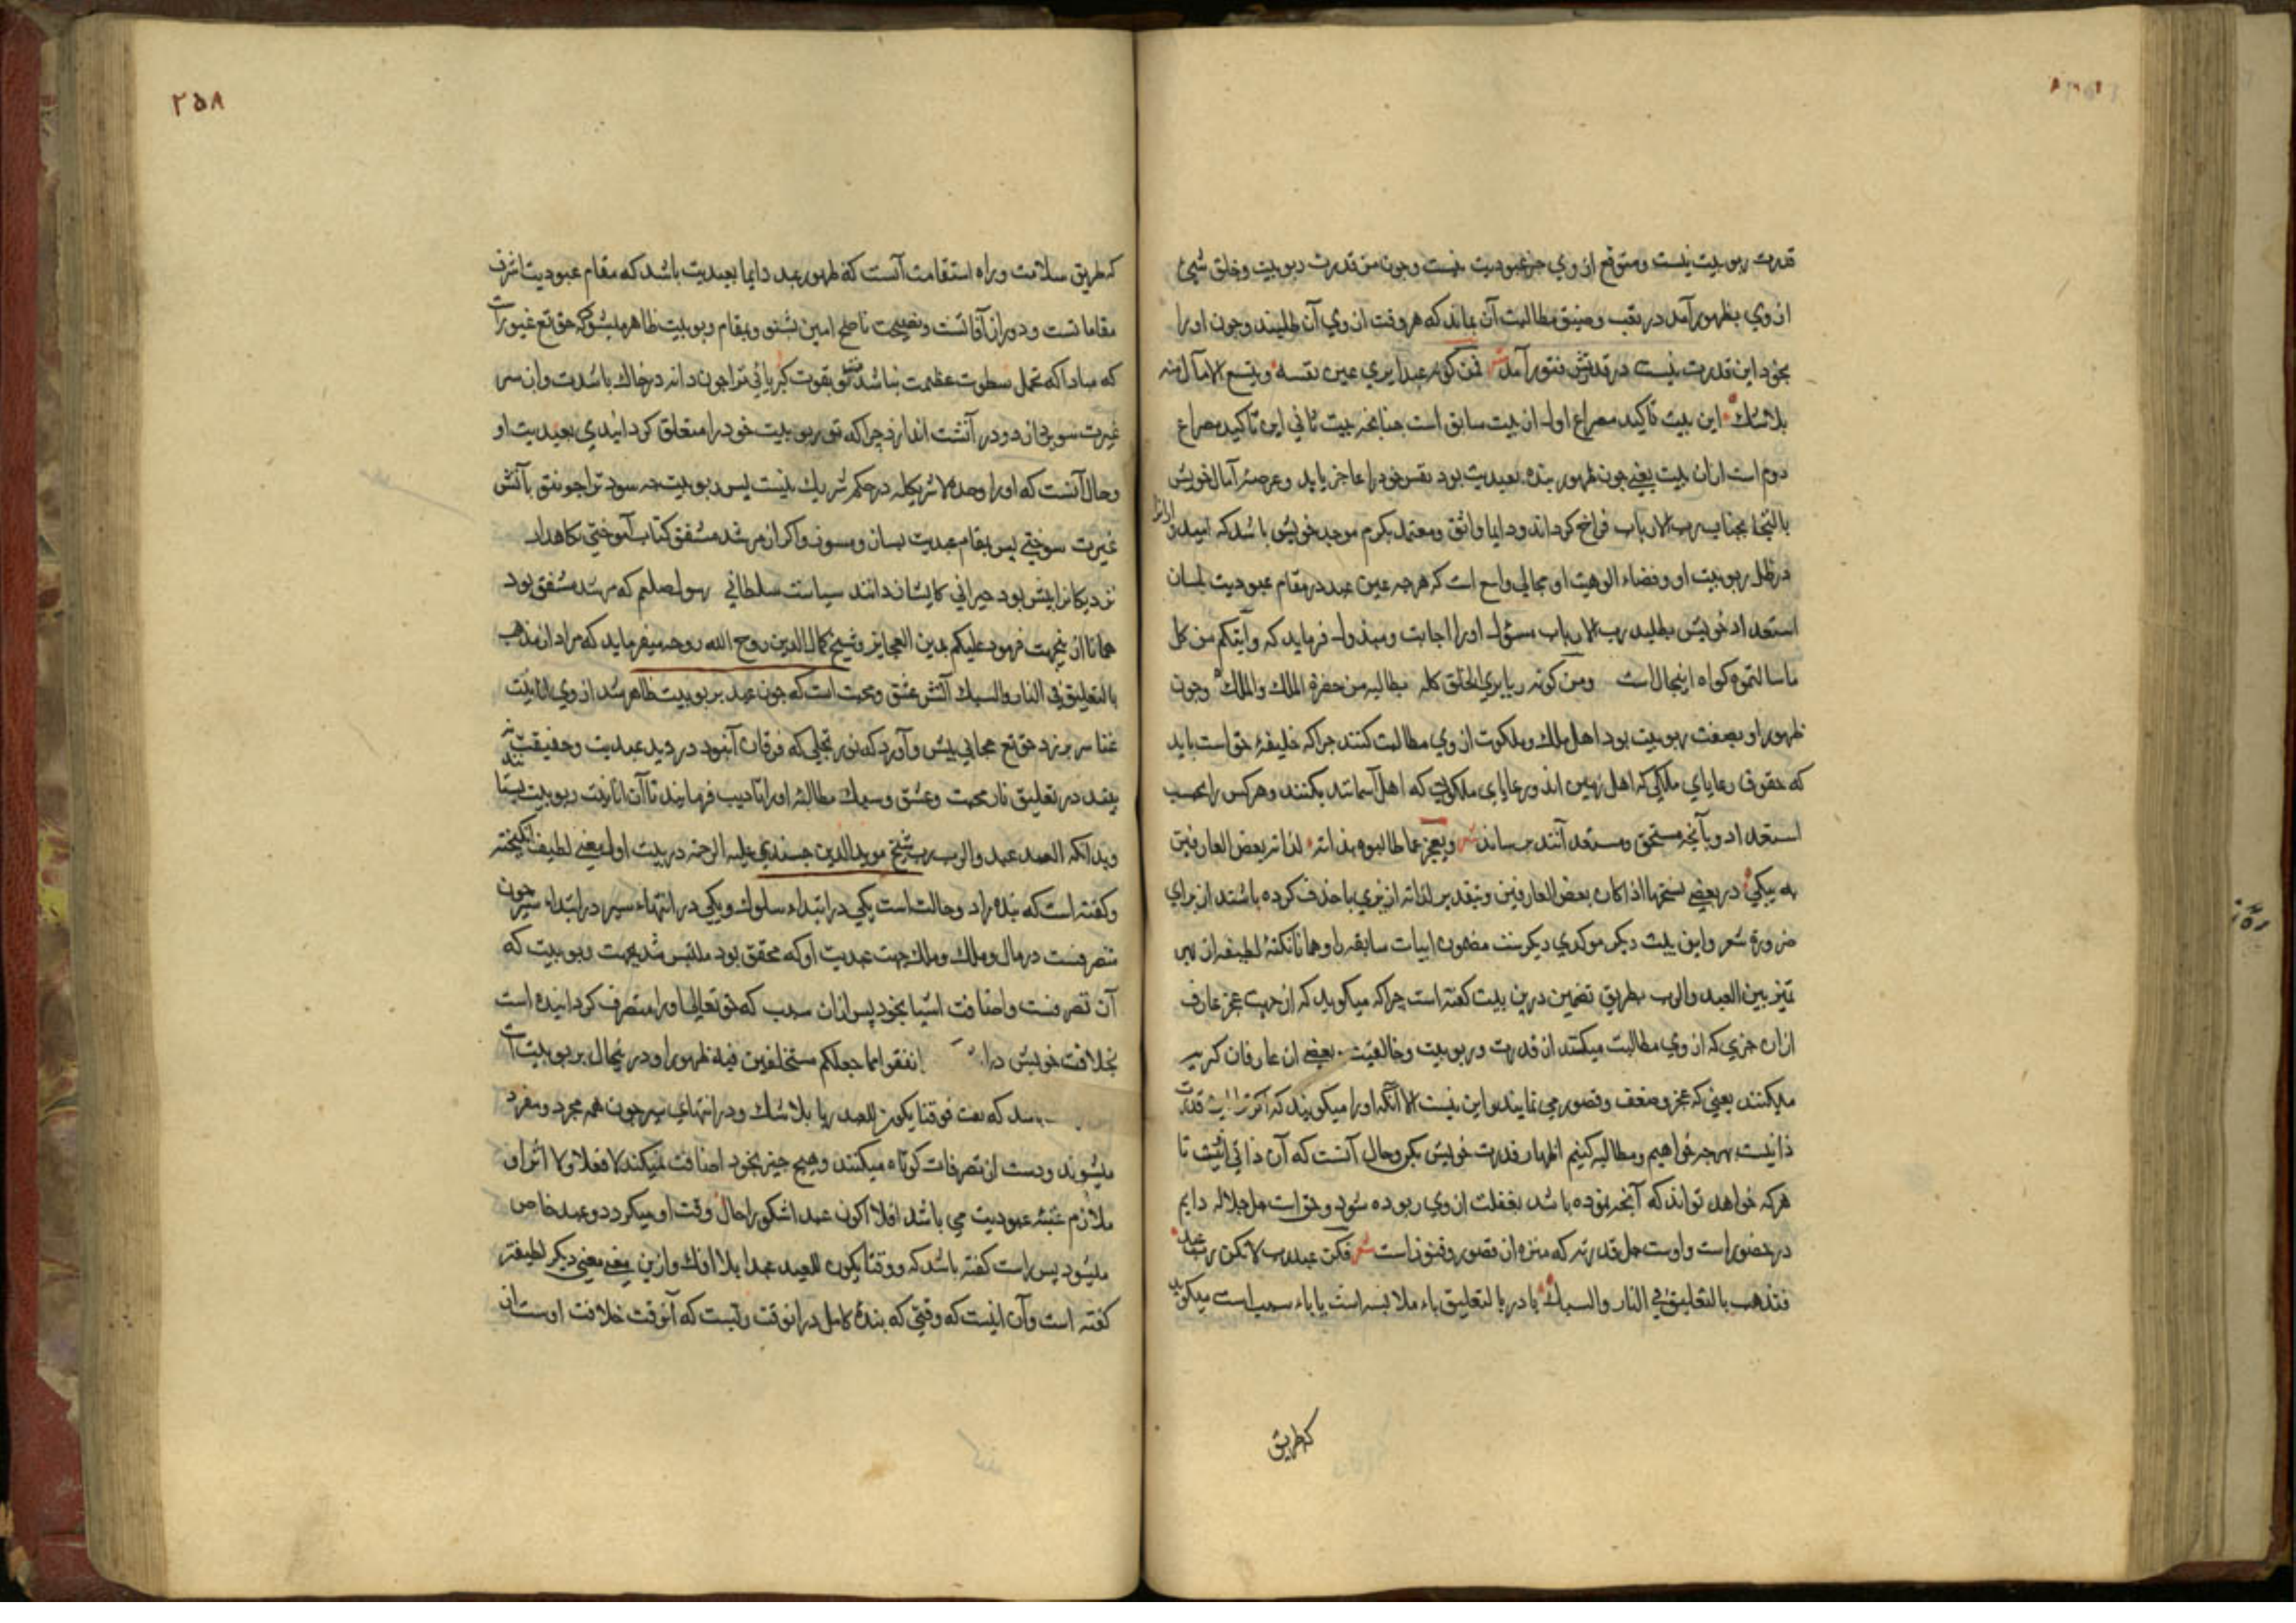 قدرت ربوبیت نیست ومتوقع از وی جز عبودیت نیست وچون من قدرت ربوبیت وخلق شیئ
از وی بظهور آمد در تعب وضیق مطالبت آن بماند که هر وقت از وی آن طلبند وچون او را
بخود این قدرت نیست در قدرتش فتور آمد فمن کونه عبدا یری عین نفسه ویتسع الامال منه
بلا شک این بیت تاکید مصراع اول از بیت سابق است چنانچه بیت ثانی این تاکید مصراع
دوم است از ان بیت یعنی چون ظهور بنده بعبدیت بود نفس خود را عاجز یابد وعرصۀ آمال خویش
بالتجا بجناب رب الارباب فراخ کرداند ودایما واثق ومعتمد بکرم موجد خویش باشد که امید
در ظل ربوبیت او وفضاء الوهیت او مجالی واسع است که هر چه عین عبد در مقام عبودیت بلسان
استعداد خویش بطلبد رب الارباب مسؤل او را اجابت ومبذول فرماید که وآتیکم من کل
ما سالتموه کواه اینحال است ومن کونه ربا یری الخلق کله یطالبه من حضرة الملک والملک وچون
ظهور او بصفت ربوبیت بود اهل ملک وملکوت از وی مطالبت کنند چرا که خلیفۀ حق است باید
که حقوق رعایای ملکی که اهل زمین اند ورعایای ملکوتی که اهل آسمانند بکنند وهر کس را بحسب
استعداد وبآنچه مستحق ومستعد آنند برساند ویعجز عما طالبوه بذاته لذا تر بعض العارفین
به یبکی در بعضی نسخها اذا کان بعض العارفین وبتقدیر لذا تر از تری یا حذف کرده باشند از برای
ضرورة شعر واین بیت دیکر موکدی دیکرست مضمون ابیات سابقه را وهمانا نکتۀ لطیفه از
تمیز بین العبد والرب بطریق تضمین درین بیت کفته است چرا که میکوید که از جهت عجز عارف
از ان چیزی که از وی مطالبت میکنند از قدرت وربوبیت وخالقیت بعضی از عارفان کریه
میکنند یعنی که عجز وضعف وقصور می نمایند واین نیست الا آنکه او را میکویند که اکر ترا این قدرت
ذاتیست هر چه خواهیم ومطالبه کنیم اظهار قدرت خویش بکن وحال آنست که آن ذاتی نیست تا
هر که خواهد تواند که آنچه نموده باشد بغفلت از وی ربوده شود وحق است جل جلاله دایم
در حضور است واوست جل قدرته که منزه از قصور وفتور است فکن عبد رب لا تکن رب عبده
فتذهب بالتعلیق فی النار والسبک یا در بالتعلیق باء ملابسه است یا باء سببیست میکوید
کطریق
۲۵۸
که طریق سلامت وراه استقامت آنست که ظهور عبد دایما بعبدیت باشد که مقام عبودیت اشرف
مقامات است ودور از آفاتست ونصیحت ناصح امین شنو وبمقام ربوبیت ظاهر مشو که حق تع غیورات
که مبادا که تحمل سطوت عظمت نباشد بقوت کبریائی ترا چون دانه در خاک باشدت وان سر
غیرت سوزان دود در آتشت اندازد چرا که تو ربوبیت خود را متعلق کردانیدی بعبدیت او
وحال آنست که او را وحده لا شریک له در حکم شریک نیست پس ربوبیت چه سود ترا چو نفق بآتش
غیرت سوختی پس بمقام عبدیت بسان ومسوز واکر از مرشد مشفق کتاب آموختی نکاهدار
نزدیکانرا بیش بود حیرانی کایشان دانند سیاست سلطانی رسول صلعم که مرشد مشفق بود
همانا از نجهت فرمود علیکم بدین العجایز وشیخ کمال الدین روح الله روحه میفرماید که مراد از مذهب
بالتعلیق فی النار والسبک آتش عشق ومحبت است که چون عبد بربوبیت ظاهر شد از وی انانیت
سر بر زد حق تع حجابی پیش وآورد که نور تجلی که فرقان آنبود در دید عبدیت وحقیقت
بیند در تعلیق نار محبت وعشق وسبک مطالبه او را تادیب فرمایند تا آن انانیت ربوبیت
وبدانکه العبد عبد والرب رب شیخ موید الدین جندی علیه الرحمه در بیت اول معنی لطیف انکیخته
وکفته است که بنده را دو حالت است یکی در ابتداء سلوک ویکی در انتهاء سیر در ابتداء سیر چون
متصرفست در مال وملک وملک جهت عبدیت او که محقق بود ملتبس شد بجهت ربوبیت که
آن تصرفست واضافت اشیا بخود پس از ان سبب که حق تعالی او را متصرف کردانیده است
بخلافت خویش در انفقوا مما جعلکم مستخلفین فیه ظهور او در نحال بربوبیت است
شد که بیت فوقتا یکون العبد ربا بلا شک ودر انتهاء سیر چون همه مجرد ومفرد
میشوند ودست از تصرفات کوتاه میکنند وهیچ چیز بخود اضافت نمیکنند لا فعلا ولا اثرا و
ملازم عتبۀ عبودیت می باشد افلا اکون عبدا شکورا حال وقت او میکردد وعبد خاص
میشود پس راست کفته باشد که ووقتا یکون العبد عبدا بلا افک وازین معنی معنی دیکر لطیفتر
کفته است وآن اینست که وقتی که بندۀ کامل در انوقت ربست که آنوقت خلافت اوست از